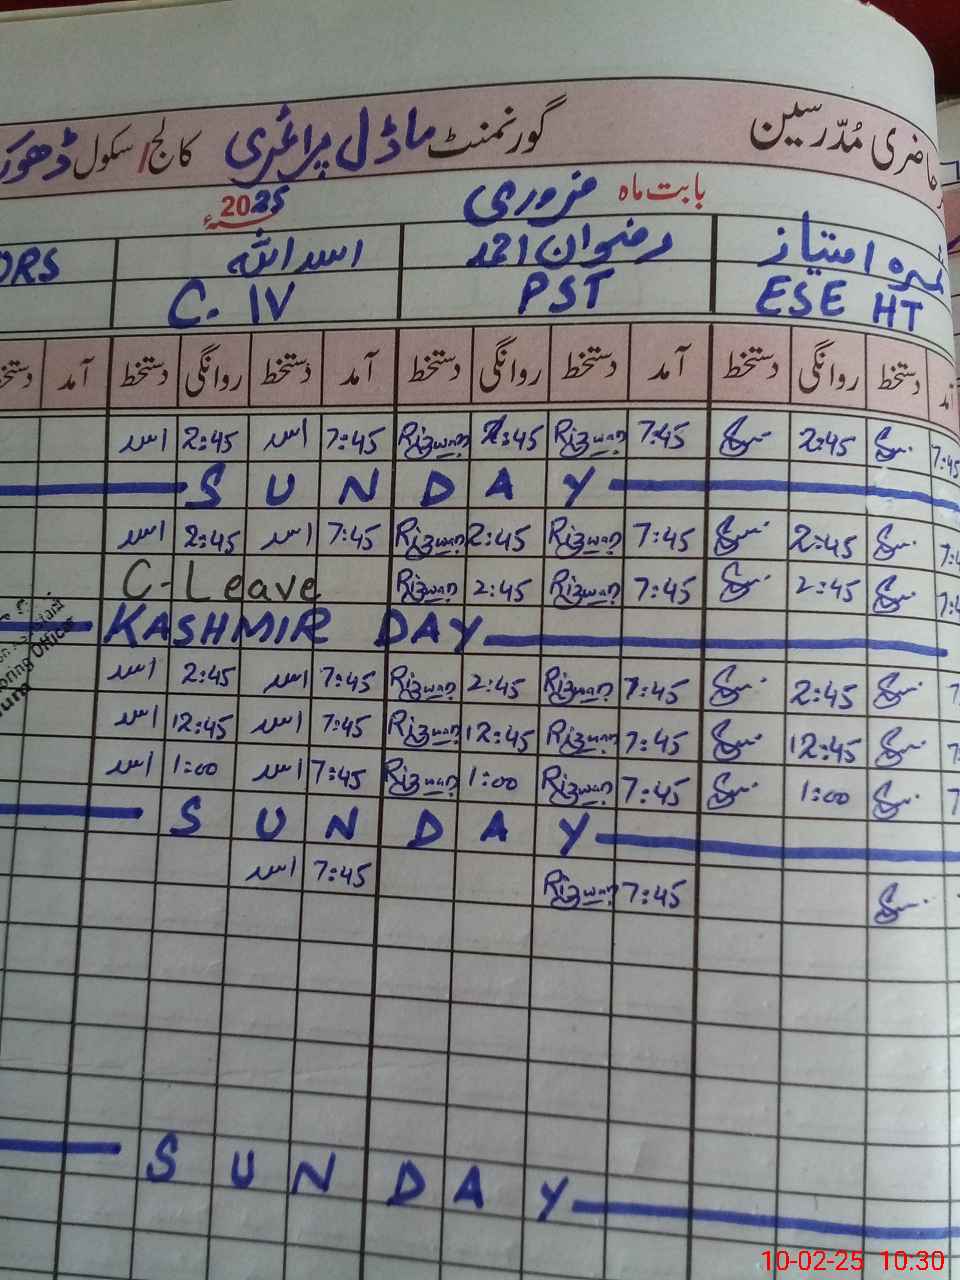 حاضری مُدّرسین گورنمنٹ ماڈل پرائمری کالج/سکول
بابت ماہ فروری 2025ء
امتیاز رضوان احمد اسد اللہ
ESE HT PST C. IV DRS
آمد دستخط روانگی دستخط آمد دستخط روانگی دستخط آمد دستخط روانگی دستخط آمد دستخط
7:45 2:45 7:45 Rizwan 2:45 Rizwan 7:45 اسد 2:45 اسد
SUNDAY
2:45 7:45 Rizwan 2:45 Rizwan 7:45 اسد 2:45 اسد
2:45 7:45 Rizwan 2:45 Rizwan C-Leave
KASHMIR DAY
2:45 7:45 Rizwan 2:45 Rizwan 7:45 اسد 2:45 اسد
12:45 7:45 Rizwan 12:45 Rizwan 7:45 اسد 12:45 اسد
1:00 7:45 Rizwan 1:00 Rizwan 7:45 اسد 1:00 اسد
SUNDAY
7:45 Rizwan 7:45 اسد
SUNDAY
10-02-25 10:30